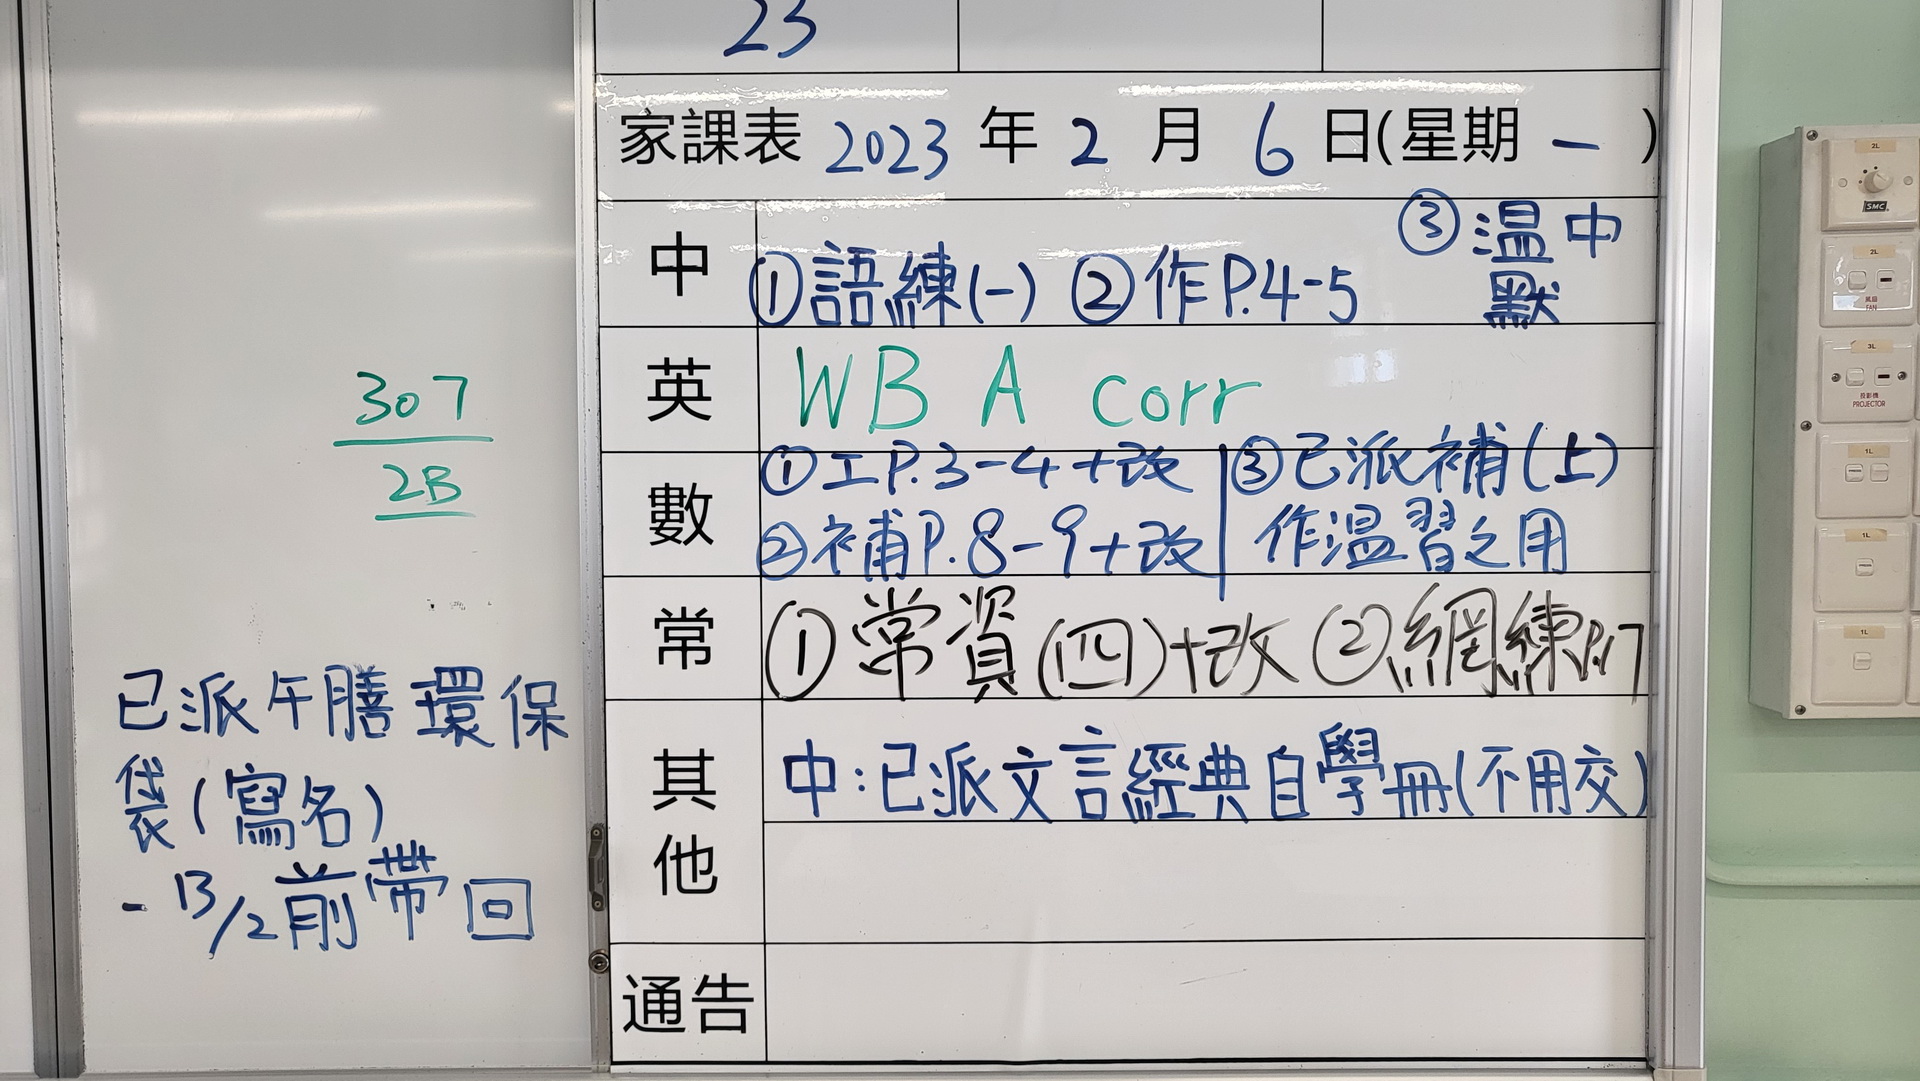 23
家課表 2023 年 2 月 6 日(星期 一 )
中 ①語練(一) ②作P.4-5 ③温中默
英 WB A corr
數 ①工P.3-4+改 ③已派補(上)
②補P.8-9+改 作温習之用
常 ①常資(四)+改 ②網練P.17
其他 中:已派文言經典自學冊(不用交)
通告
307
2B
已派午膳環保
袋(寫名)
- 13/2前帶回
2L
SMC
2L
風扇
FAN
3L
投影機
PROJECTOR
1L
1L
1L